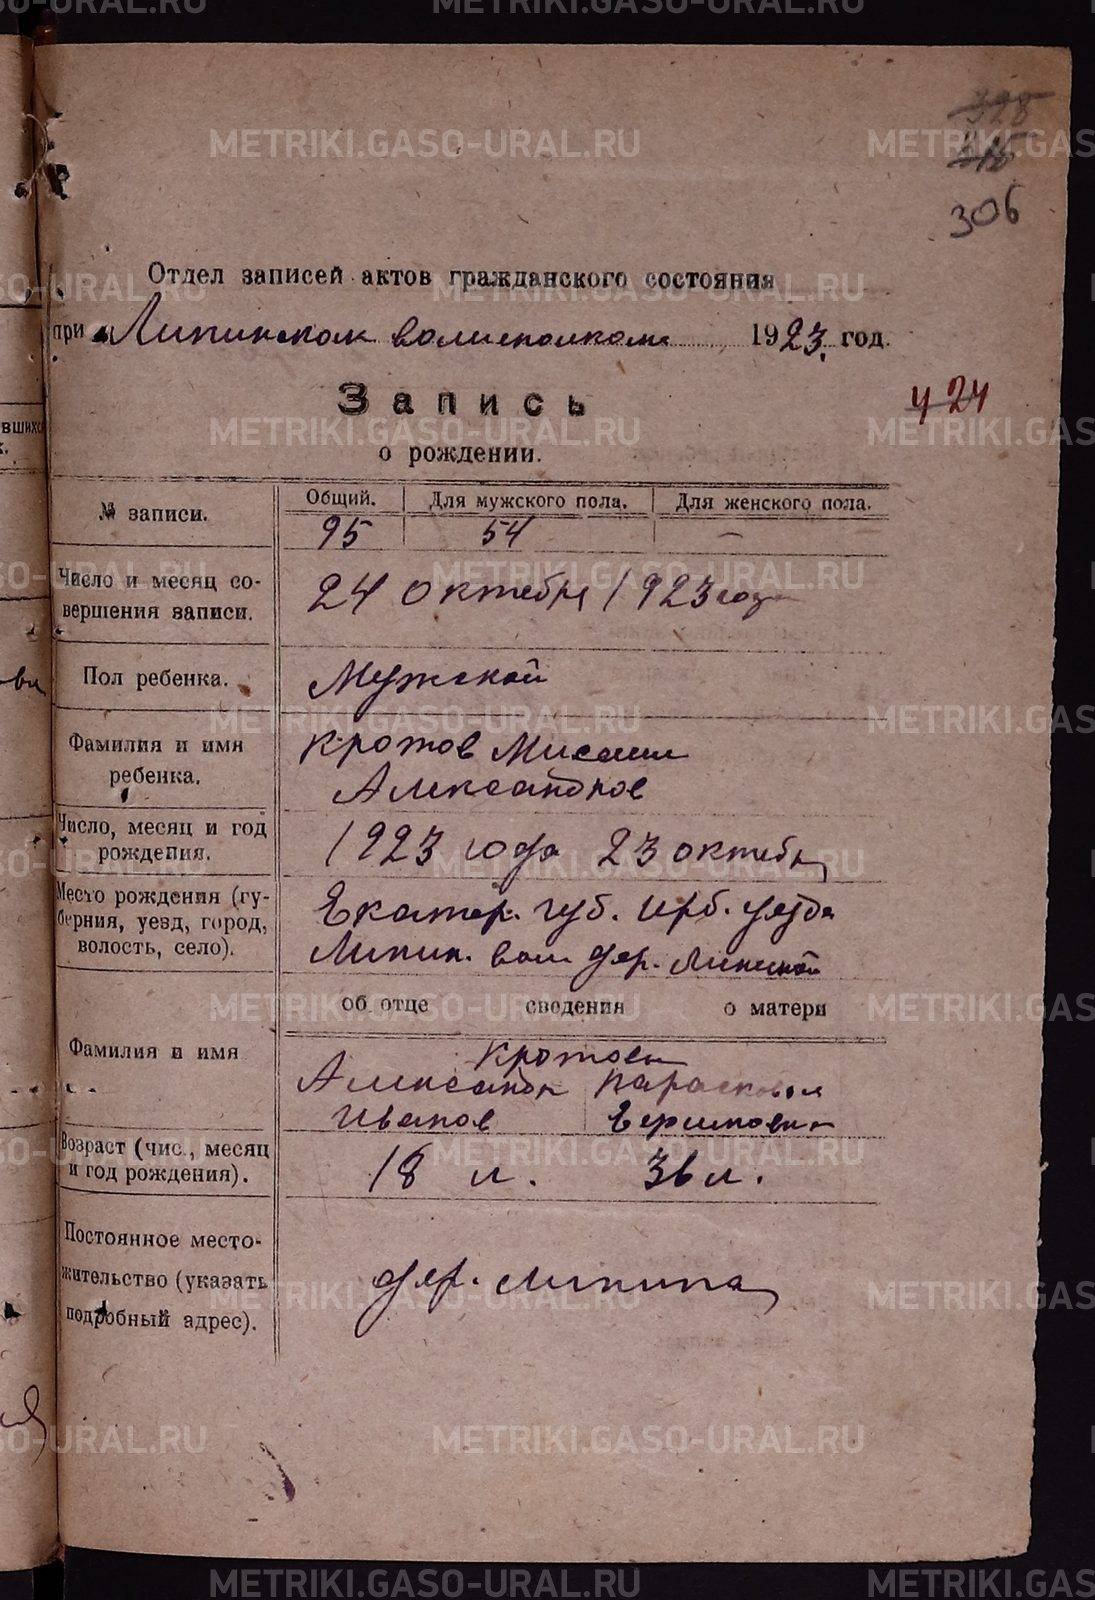 328
306
Отдел записей актов гражданского состояния
при Липинском волисполкоме 1923 год.
424
Запись
о рождении.
№ записи.
Общий. Для мужского пола. Для женского пола.
95 54 –
Число и месяц со-
вершения записи.
24 Октября 1923 года
Пол ребенка.
Мужской
Фамилия и имя
ребенка.
Кротов Михаил
Александров
Число, месяц и год
рождения.
1923 года 23 октября
Место рождения (гу-
берния, уезд, город,
волость, село).
Екатер. губ. Ирб. уезда
Липин. вол дер. Липиной
об отце сведения о матери
Фамилия и имя
Кротовы
Александр Парасковья
Иванов
Возраст (чис., месяц
и год рождения).
18 л. 36 л.
Постоянное место-
жительство (указать
подробный адрес).
дер. Липина
METRIKI.GASO-URAL.RU